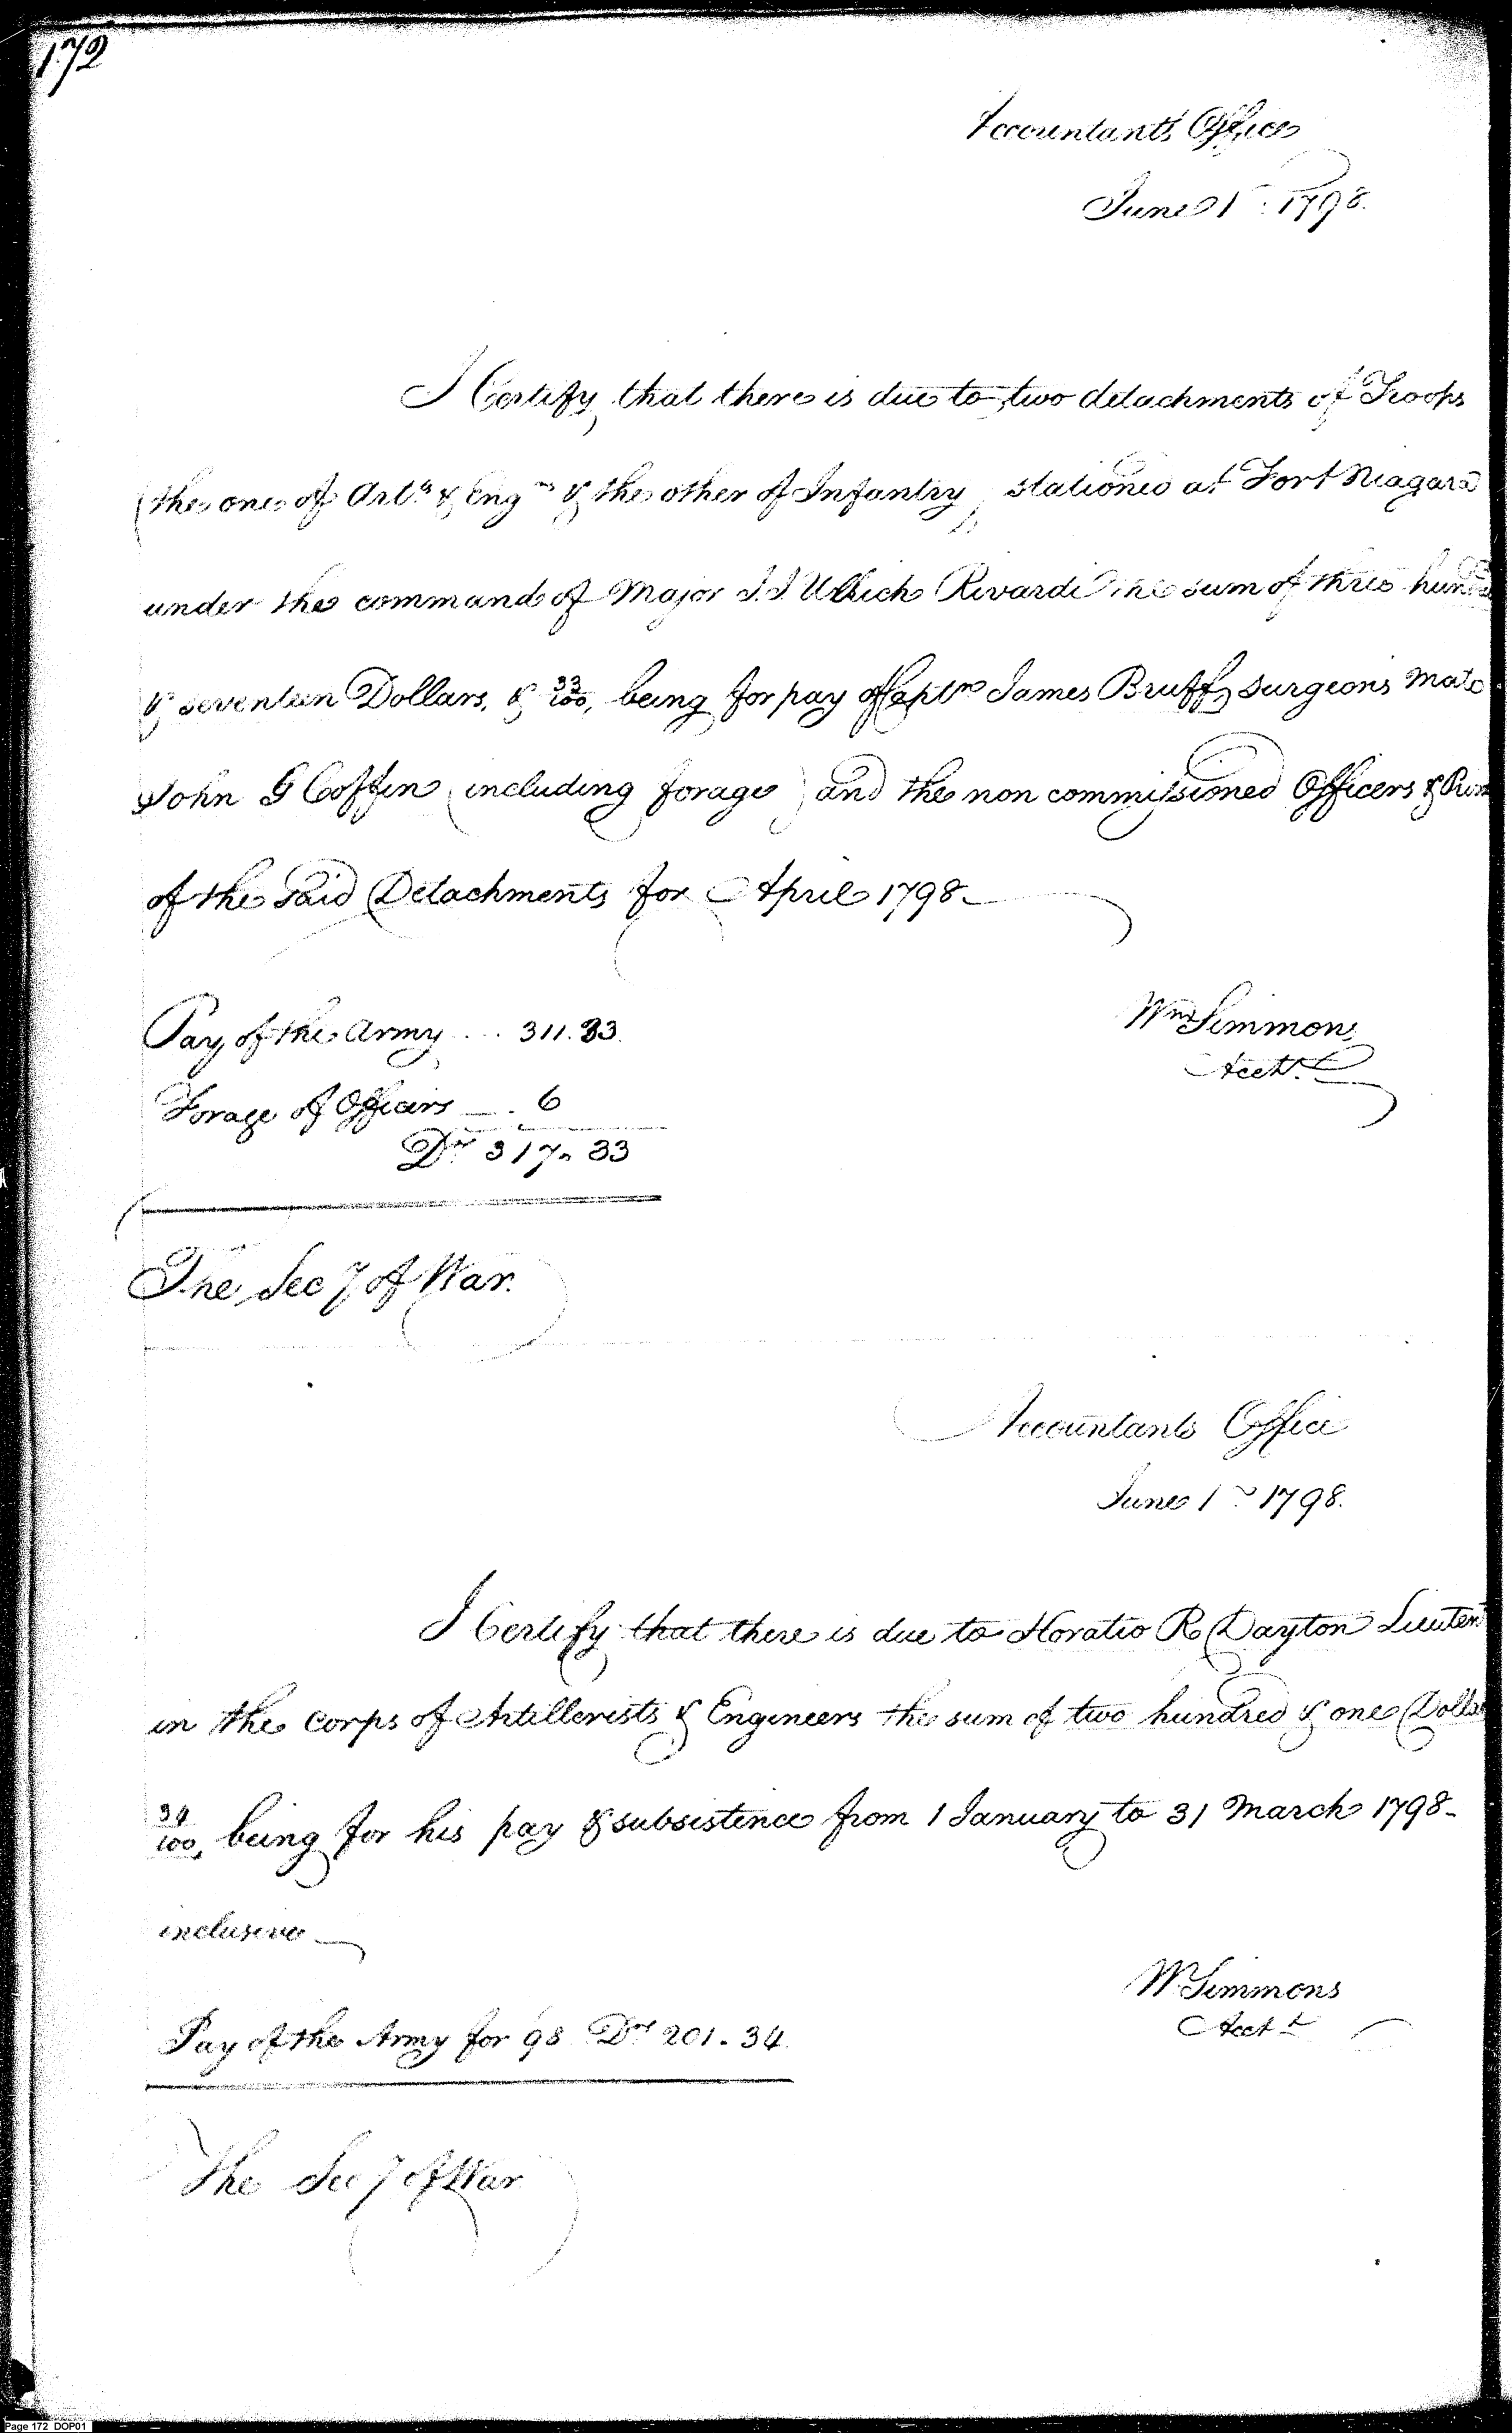 172
Accountants Office
June 1st. 1798.
I Certify that there is due to two detachments of Troops
(the one of Arts. & Engrs & the other of Infantry) stationed at Fort Niagara
under the command of Major J. J. Ulrich Rivardi the sum of three
& seventeen Dollars, & 33/100, being for pay of Captn James Bruff, surgeons Mate
John G Coffin (including forage) and the non commissioned Officers &
of the said Detachments for April 1798_
Pay of the Army ... 311.33.
Wm Simmons
Acctt.
Forage of Officers __ . 6
Drs 317. 33
The Secy of War.
Accountants Office
June 1st 1798.
I Certify that there is due to Horatio R Dayton Lieutent
in the corps of Artillerists & Engineers the sum of two hundred & one
34/100, being for his pay & subsistence from 1 January to 31 March 1798_
inclusive_
W Simmons
Acctt
Pay of the Army for 98. Drs 201. 34.
The Secy of War
Page 172 DOP01